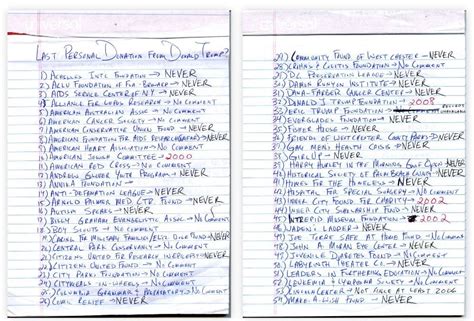 LAST PERSONAL DONATION FROM DONALD TRUMP?
1) ACHILLES INTL FOUNDATION → NEVER
2) ACLU FOUNDATION OF FLA - BROWARD → NEVER
3) AIDS SERVICE CENTER OF N.Y. → NEVER
4) ALLIANCE FOR LUPUS RESEARCH → NO COMMENT
5) AMERICAN AUSTRALIAN ASSN → NO COMMENT
6) AMERICAN CANCER SOCIETY → NO COMMENT
7) AMERICAN CONSERVATIVE UNION FUND → NEVER
8) AMERICAN FOUNDATION FOR AIDS RESEARCH → NEVER
9) AMERICAN HEART ASSOCIATION → NO COMMENT
10) AMERICAN COMMITTEE → 2000
11) AMERICAN RED CROSS → NO COMMENT
12) ANDREW GLOVER YOUTH PROGRAM → NEVER
13) ANNIKA FOUNDATION → NEVER
14) ANTI-DEFAMATION LEAGUE → NEVER
15) ARNOLD PALMER MED. CTR. FOUND → NEVER
16) AUTISM SPEAKS → NEVER
17) BILLY GRAHAM EVANGELISTIC ASSN. → NO COMMENT
18) BOY SCOUTS → NO COMMENT
19) CARING FOR MILITARY FAMILIES / ELIZ. DOLE FUND → NEVER
20) CENTRAL PARK CONSERVANCY → NO COMMENT
21) CITIZENS UNITED FOR RESEARCH IN EPILEPSY → NEVER
22) CITIZENS UNITED FOUND → NO COMMENT
23) CITY PARKS FOUNDATION → NO COMMENT
24) CITYMEALS-ON-WHEELS → NO COMMENT
25) COLUMBIA GRAMMAR & PREPARATORY → NO COMMENT
26) COMIC RELIEF → NEVER
27) COMMUNITY FUND OF WESTCHESTER → NEVER
28) CROHNS & COLITIS FOUNDATION → NO COMMENT
29) D.C. PRESERVATION LEAGUE → NEVER
30) DAMON RUNYON INSTITUTE → NEVER
31) DANA-FARBER CANCER CENTER → NEVER
32) DONALD J. TRUMP FOUNDATION → 2008
33) ERIC TRUMP FOUNDATION → RECORDS UNCLEAR
34) EVERGLADES FOUNDATION → NEVER
35) FISHER HOUSE → NEVER
36) FRIENDS OF WESTCHESTER COUNTY PARKS → NEVER
37) GAY MEN'S HEALTH CRISIS → NEVER
38) GIRL UP → NEVER
39) HARRY HURLEY IN THE MORNING GOLF OPEN → NEVER
40) HISTORICAL SOCIETY OF PALM BEACH COUNTY → NEVER
41) HOMES FOR THE HOMELESS → NEVER
42) HOSPITAL FOR SPECIAL SURGERY → NO COMMENT
43) INNER CITY FOUND. FOR CHARITY → 2002
44) INNER CITY SCHOLARSHIP FUND → NEVER
45) INTREPID MUSEUM FOUNDATION → 2002
46) JADEN'S LADDER → NEVER
47) JOE TORRE SAFE AT HOME FOUND → NO COMMENT
48) JOHN A. MORAN EYE CENTER → NEVER
49) JUVENILE DIABETES FOUND → NO COMMENT
50) LABYRINTH THEATER CO. → NEVER
51) LEADERS IN FURTHERING EDUCATION → NO COMMENT
52) LEUKEMIA & LYMPHOMA SOCIETY → NO COMMENT
53) LINCOLN CENTER → NOT AT LEAST SINCE 2006
54) MAKE-A-WISH FUND → NEVER